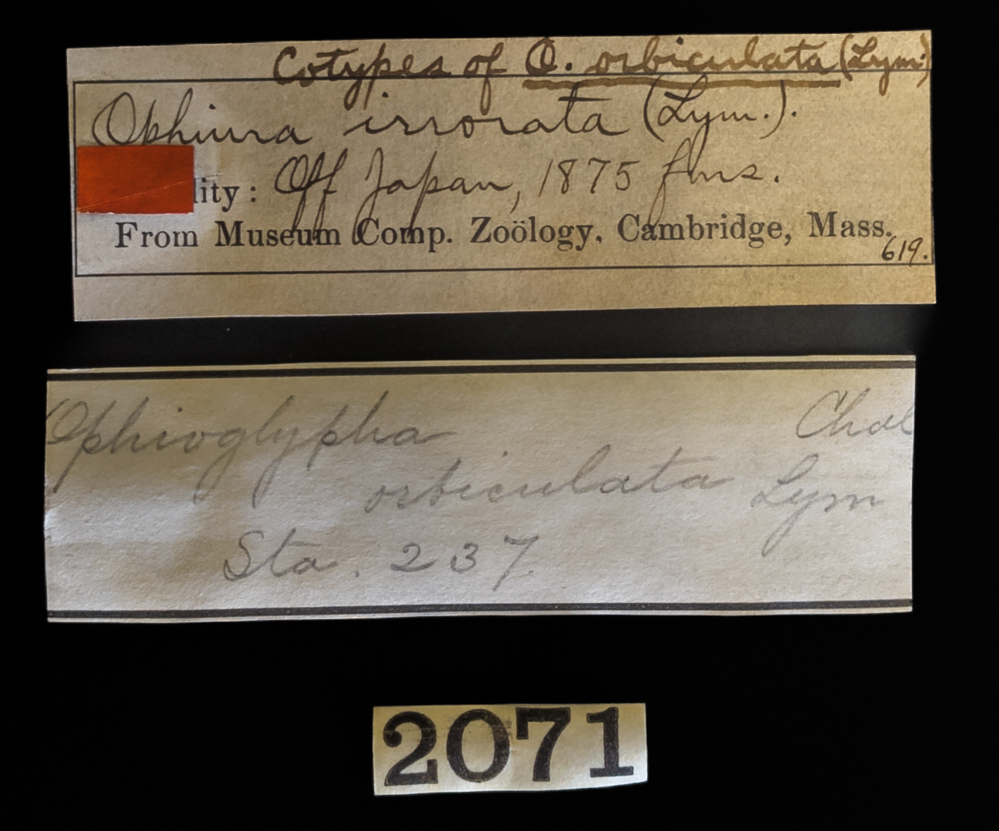 Cotypes of O. orbiculata (Lym.)
Ophiura irrorata (Lym.).
lity: Off Japan, 1875 fms.
From Museum Comp. Zoölogy. Cambridge, Mass.
619.
Ophioglypha Chal
orbiculata Lym
Sta. 237.
2071